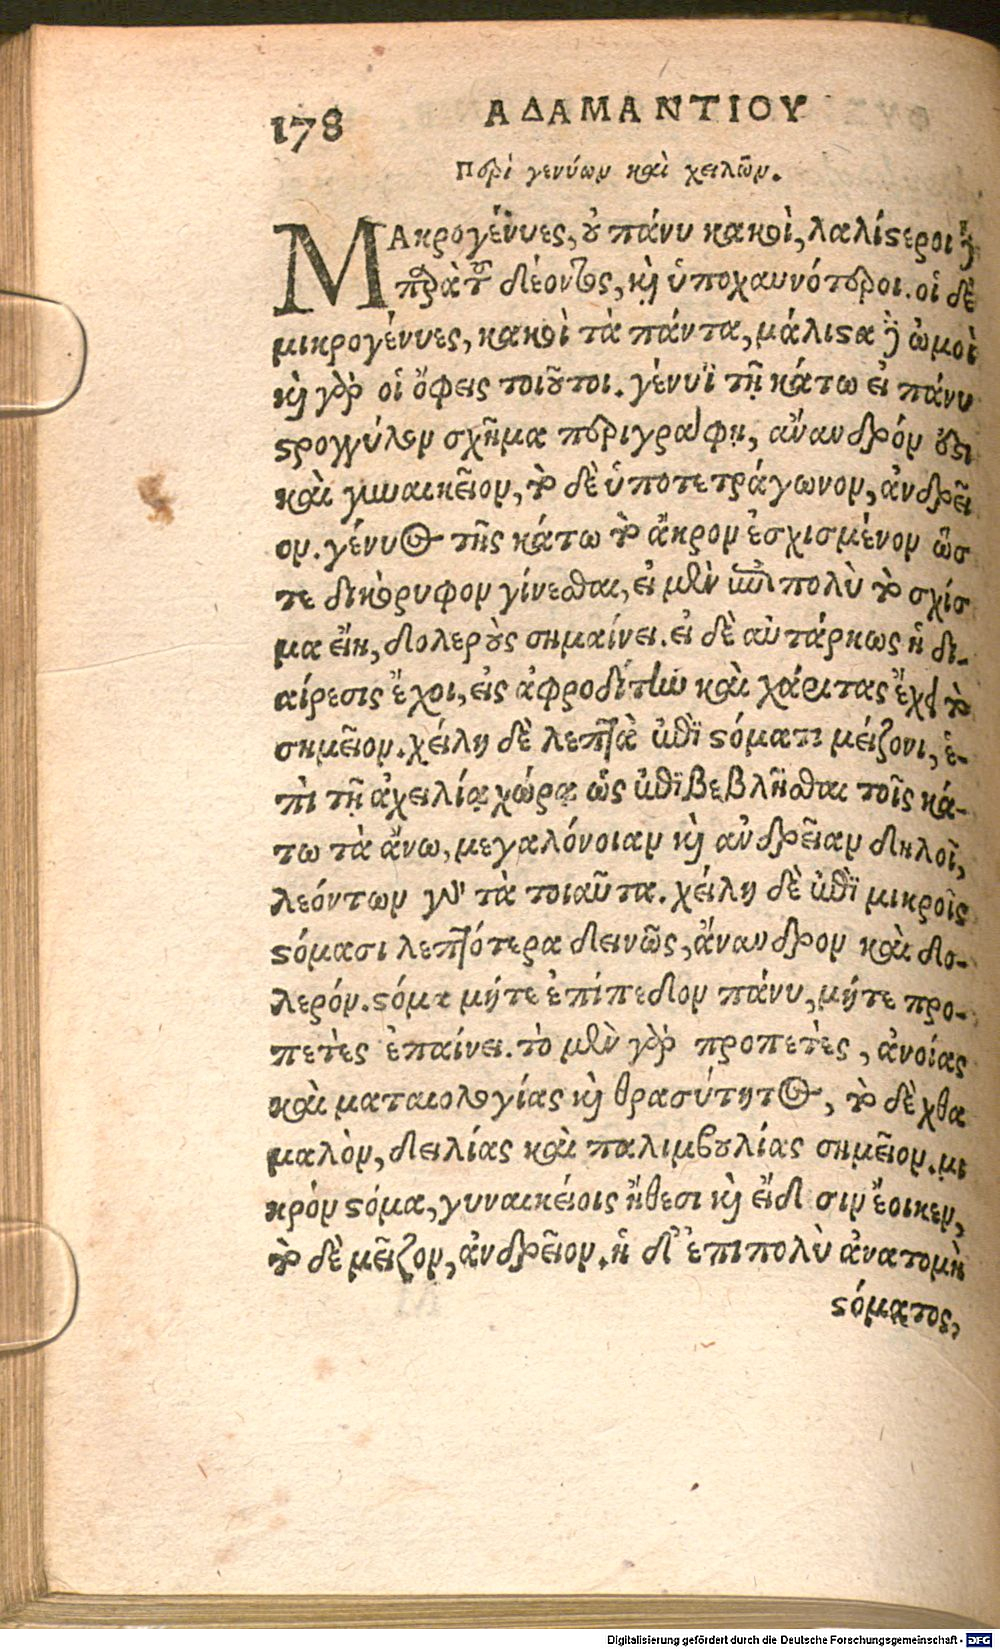 178 ΑΔΑΜΑΝΤΙΟΥ
Περὶ γενύων καὶ χειλῶν.
ΜΑκρογένυες, οὐ πάνυ κακοὶ, λαλίστεροι δὲ
παρὰ τοῦ δέοντος, καὶ ὑποχαυνότεροι. οἱ δὲ
μικρογένυες, κακοὶ τὰ πάντα, μάλιστα δὲ ὠμοὶ
καὶ γὰρ οἱ ὄφεις τοιοῦτοι. γένυϊ τῇ κάτω εἰ πάνυ
στρογγύλον σχῆμα περιγραφῃ, ἄνανδρόν ἐστι
καὶ γυναικεῖον, τὸ δὲ ὑποτετράγωνον, ἀνδρεῖ
ον. γένυος τῆς κάτω τὸ ἄκρον ἐσχισμένον ὥσ
τε δικόρυφον γίνεσθαι, εἰ μὲν ἐπὶ πολὺ τὸ σχίσ
μα εἴη, δολεροὺς σημαίνει. εἰ δὲ αὐτάρκως ἡ δι-
αίρεσις ἔχοι, εἰς ἀφροδίτην καὶ χάριτας ἔχει τὸ
σημεῖον. χείλη δὲ λεπτὰ ἐπὶ στόματι μείζονι, ἐ-
πὶ τῇ ἀχειλίᾳ χώρᾳ ὡς ἐπιβεβλῆσθαι τοῖς κά-
τω τὰ ἄνω, μεγαλόνοιαν καὶ ἀνδρεῖαν δηλοῖ,
λεόντων γὰρ τὰ τοιαῦτα. χείλη δὲ ἐπὶ μικροῖς
στόμασι λεπτότερα δεινῶς, ἄνανδρον καὶ δο-
λερόν. στόμα μήτε ἐπίπεδον πάνυ, μήτε προ-
πετὲς ἐπαίνει. τὸ μὲν γὰρ προπετὲς, ἀνοίας
καὶ ματαιολογίας καὶ θρασύτητος, τὸ δὲ χθα
μαλὸν, δειλίας καὶ παλιμβουλίας σημεῖον. μι
κρὸν στόμα, γυναικείοις ἤθεσι καὶ εἴδεσιν ἔοικεν,
τὸ δὲ μεῖζον, ἀνδρεῖον. ἡ δ' ἐπιπολὺ ἀνατομὴ
στόματος,
Digitalisierung gefördert durch die Deutsche Forschungsgemeinschaft - DFG